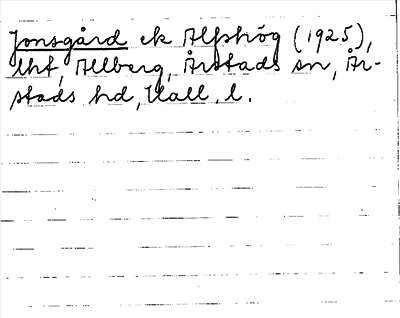 Jonsgård ek Alfshög (1925),
lht, Allberg, Årstads sn, År-
stads hd, Hall. l.